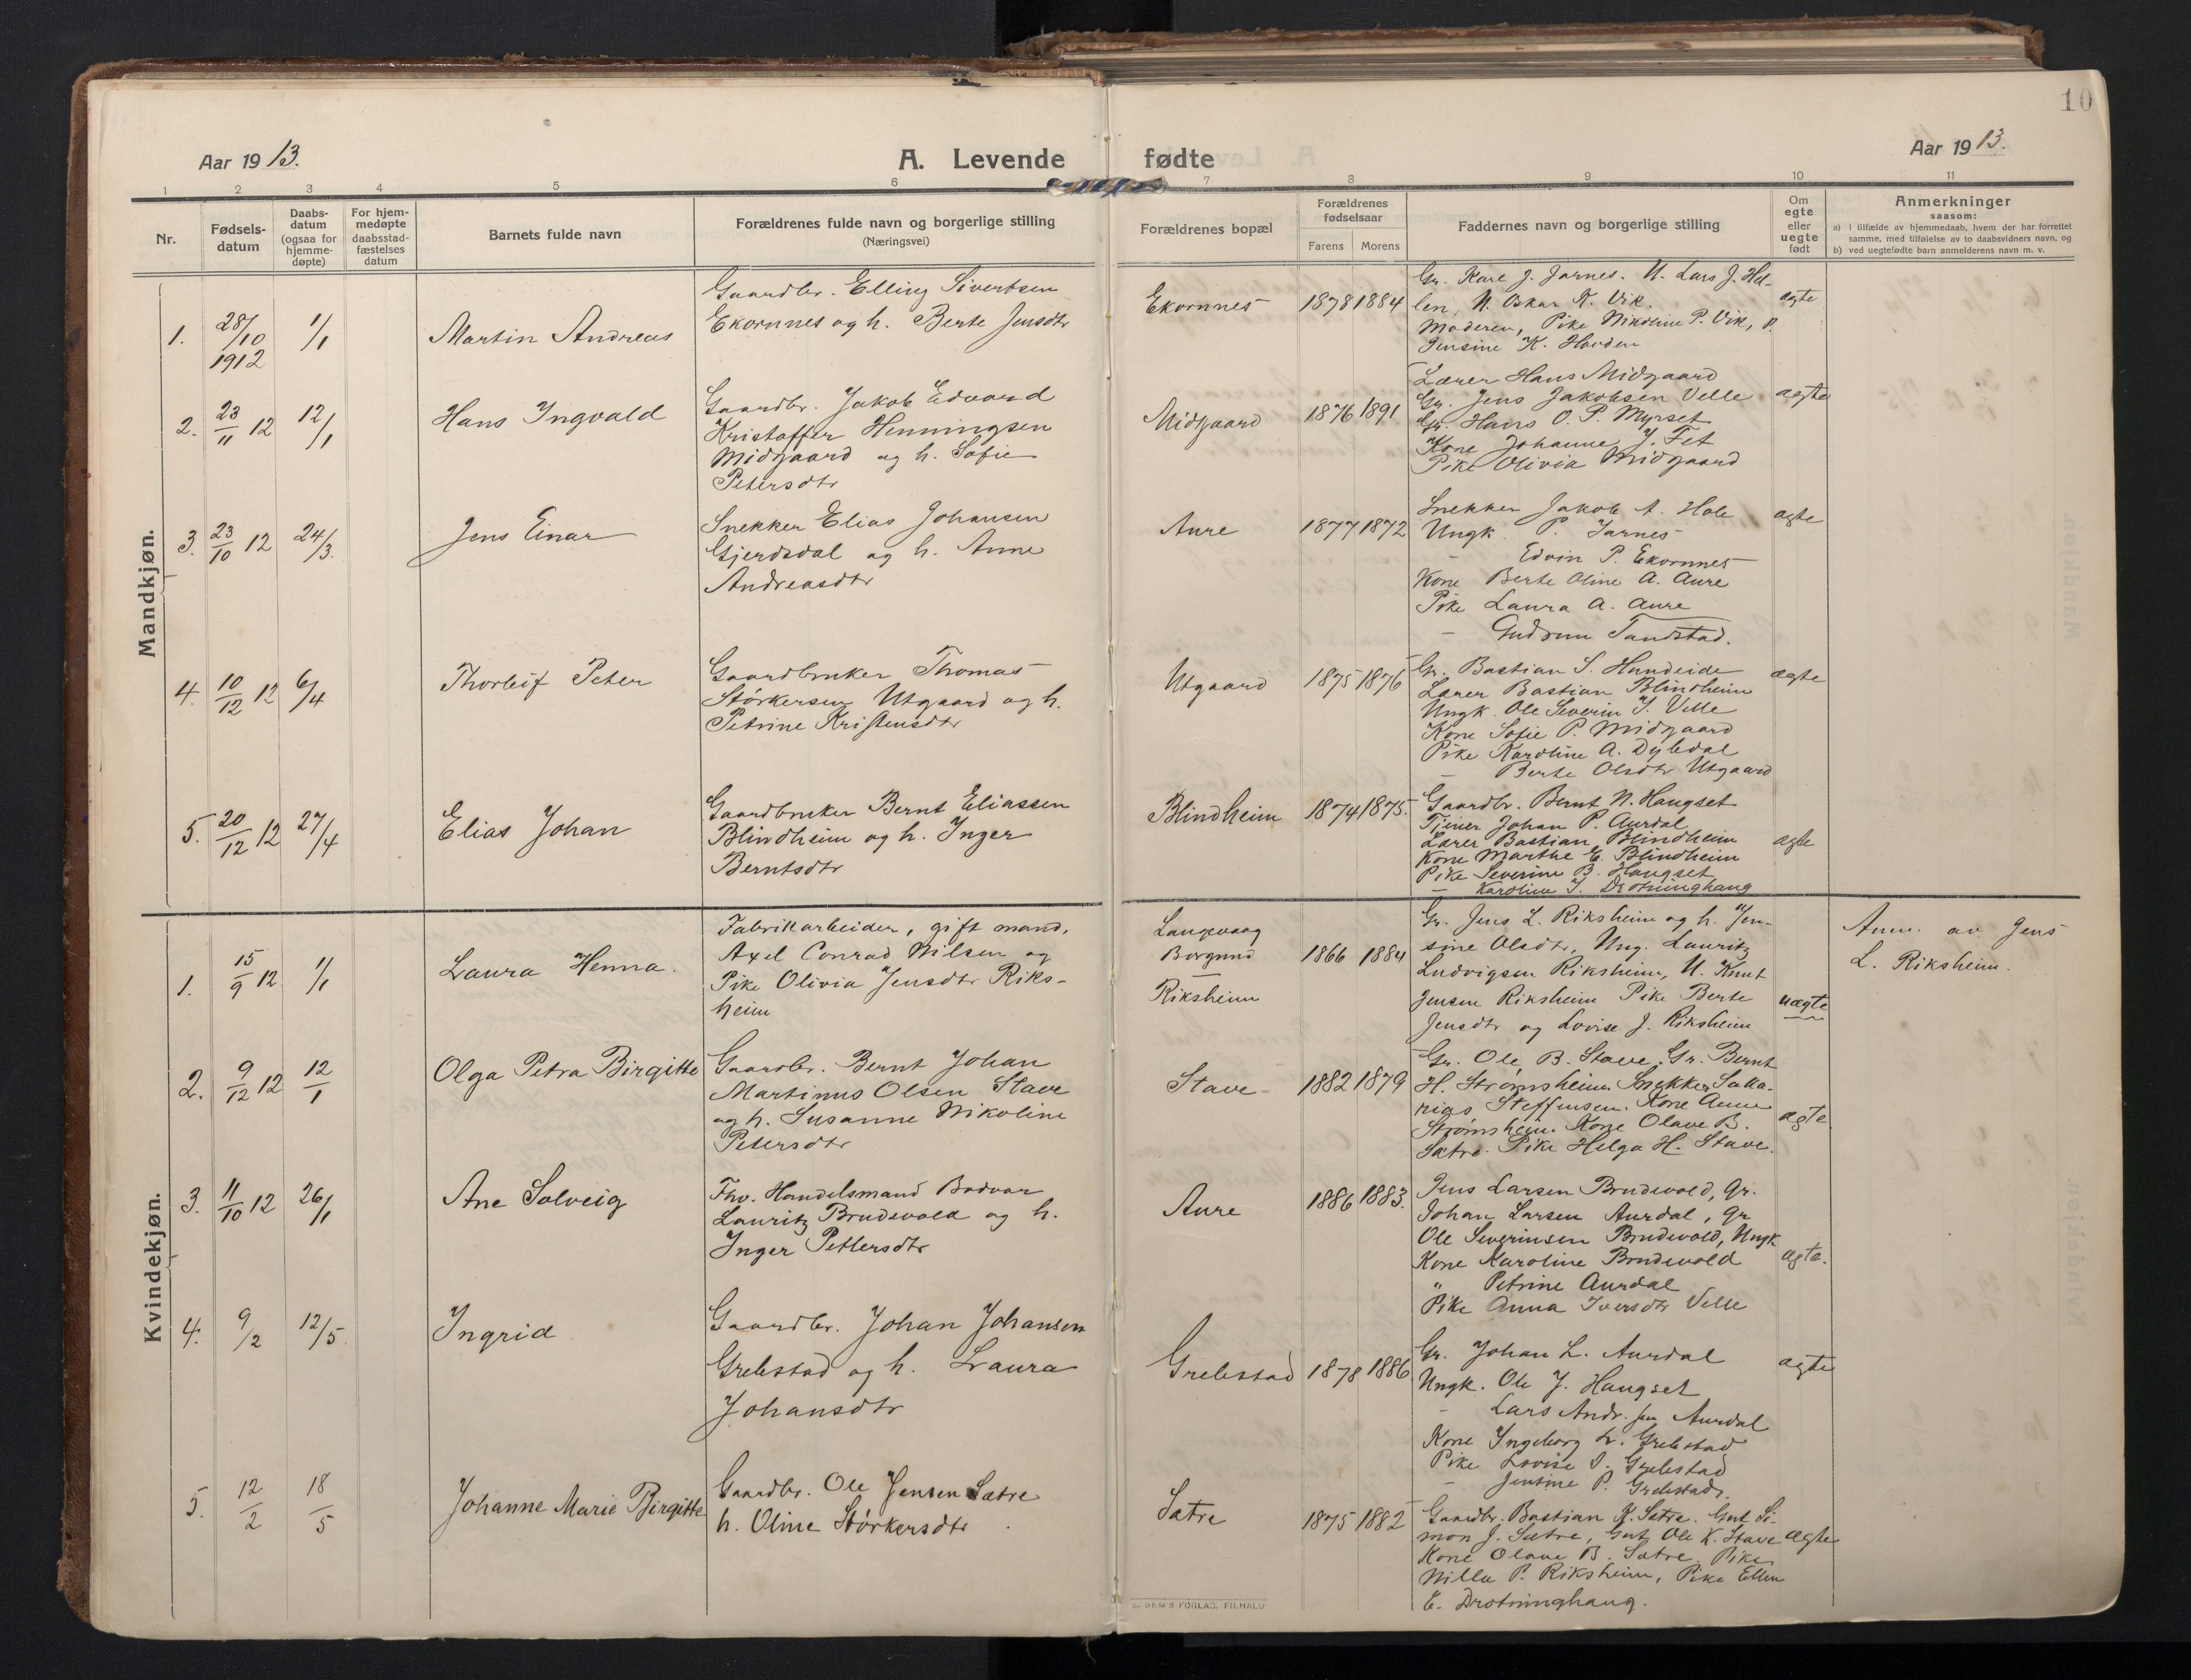 10
Aar 1913.
A. Levende fødte
Aar 1913.
1 2 3 4 5 6 7 8 9 10 11
Nr.
Fødsels-
datum
Daabs-
datum
(ogsaa for
hjemme-
døpte)
For hjem-
medøpte
daabsstad-
fæstelses
datum
Barnets fulde navn
Forældrenes fulde navn og borgerlige stilling
(Næringsvei)
Forældrenes bopæl
Forældrenes
fødselsaar
Farens Morens
Faddernes navn og borgerlige stilling
Om
egte
eller
uegte
født
Anmerkninger
saasom:
a) i tilfælde av hjemmedaab, hvem der har forrettet
samme, med tilføielse av to daabsvidners navn, og
b) ved uegtefødte barn anmelderens navn m. v.
Mandkjøn.
1. 28/10 1912 1/1 Martin Andreas
Gaardbr. Elling Sivertsen
Ekornnes og h. Berte Jensdtr
Ekornnes 1878 1884
Gr. Kare J. Jarnes. U. Lars J. Hel-
len, U. Oskar K. Vik.
Moderen, Pike Nikoline P. Vik, P.
Jensine K. Hovden
ægte
2. 23/11 12 12/1 Hans Ingvald
Gaardbr. Jakob Edvard
Kristoffer Henningsen
Midgaard og h. Sofie
Petersdtr
Midgaard 1876 1891
Lærer Hans Midgaard
Gr. Jens Jakobsen Velle
Gr. Hans O. P. Myrset
Kone Johanne J. Fet
Pike Olivia Midgaard
ægte
3. 23/10 12 24/3. Jens Einar
Snekker Elias Johansen
Gjerdsdal og h. Anne
Andreasdtr
Aure 1877 1872
Snekker Jakob A. Hole
Ungk. P. Jarnes
– Edvin P. Ekornnes
Kone Berte Oline A. Aure
Pike Laura A. Aure
– Gudrun Tandstad.
ægte
4. 10/12 12 6/4 Thorleif Peter
Gaardbruker Thomas
Størkersen Utgaard og h.
Petrine Kristensdtr
Utgaard 1875 1876
Gr. Bastian S. Hundeide
Lærer Bastian Blindheim
Ungk. Ole Severin J. Velle
Kone Sofie P. Midgaard
Pike Karoline A. Dybdal
– Berte Olsdtr Utgaard
ægte
5. 20/12 12 27/4 Elias Johan
Gaardbruker Bernt Eliassen
Blindheim og h. Inger
Berntsdtr
Blindheim 1874 1875.
Gaardbr. Bernt N. Haugset
Tjener Johan P. Aurdal
Lærer Bastian Blindheim
Kone Marthe E. Blindheim
Pike Severine B. Haugset
– Karoline J. Drotninghaug
ægte
Kvindekjøn.
1. 15/9 12 1/1 Laura Henna.
Fabrikarbeider, gift mand,
Axel Conrad Nilsen og
Pike Olivia Jensdtr Riks-
heim
Langevaag
Borgund
Riksheim
1866 1884
Gr. Jens L. Riksheim og h. Jen-
sine Olsdtr, Ung. Lauritz
Ludvigsen Riksheim, U. Knut
Jensen Riksheim Pike Berte
Jensdtr og Lovise J. Riksheim
uægte
Anm. av Jens
L. Riksheim.
2. 9/12 12 12/1 Olga Petra Birgitte
Gaardbr. Bernt Johan
Martinus Olsen Stave
og h. Susanne Nikoline
Petersdtr
Stave 1882 1879
Gr. Ole B. Stave, Gr. Bernt
H. Strømsheim. Snekker Saka-
rias Steffensen. Kone Anne
Strømsheim. Kone Olave B.
Sætre. Pike Helga H. Stave.
ægte
3. 11/10 12 26/1 Ane Solveig
Fhv. Handelsmand Bodvar
Lauritz Brudevold og h.
Inger Pettersdtr
Aure 1886 1883.
Jens Larsen Brudevold, Gr.
Johan Larsen Aurdal, Gr
Ole Severinsen Brudevold, Ungk
Kone Karoline Brudevold
" Petrine Aurdal
Pike Anna Iversdtr Velle
ægte.
4. 9/2 12/5. Ingrid
Gaardbr. Johan Johansen
Grebstad og h. Laura
Johansdtr
Grebstad 1878 1886
Gr. Johan L. Aurdal
Ungk. Ole J. Haugset
– Lars Andr. Aurdal
Kone Ingeborg L. Grebstad
Pike Lovise O. Grebstad
– Jensine P. Grebstad.
ægte
5. 12/2 18/5 Johanne Marie Birgitte
Gaardbr. Ole Jensen Sætre
h. Oline Størkersdtr
Sætre 1875 1882
Gaardbr. Bastian K. Sætre. Gut Si-
mon J. Sætre, Gut Ole K. Stave
Kone Olave B. Sætre. Pike
Nilla P. Riksheim, Pike Ellen
E. Drotninghaug.
ægte
E. SEM'S FORLAG, FR.HALD